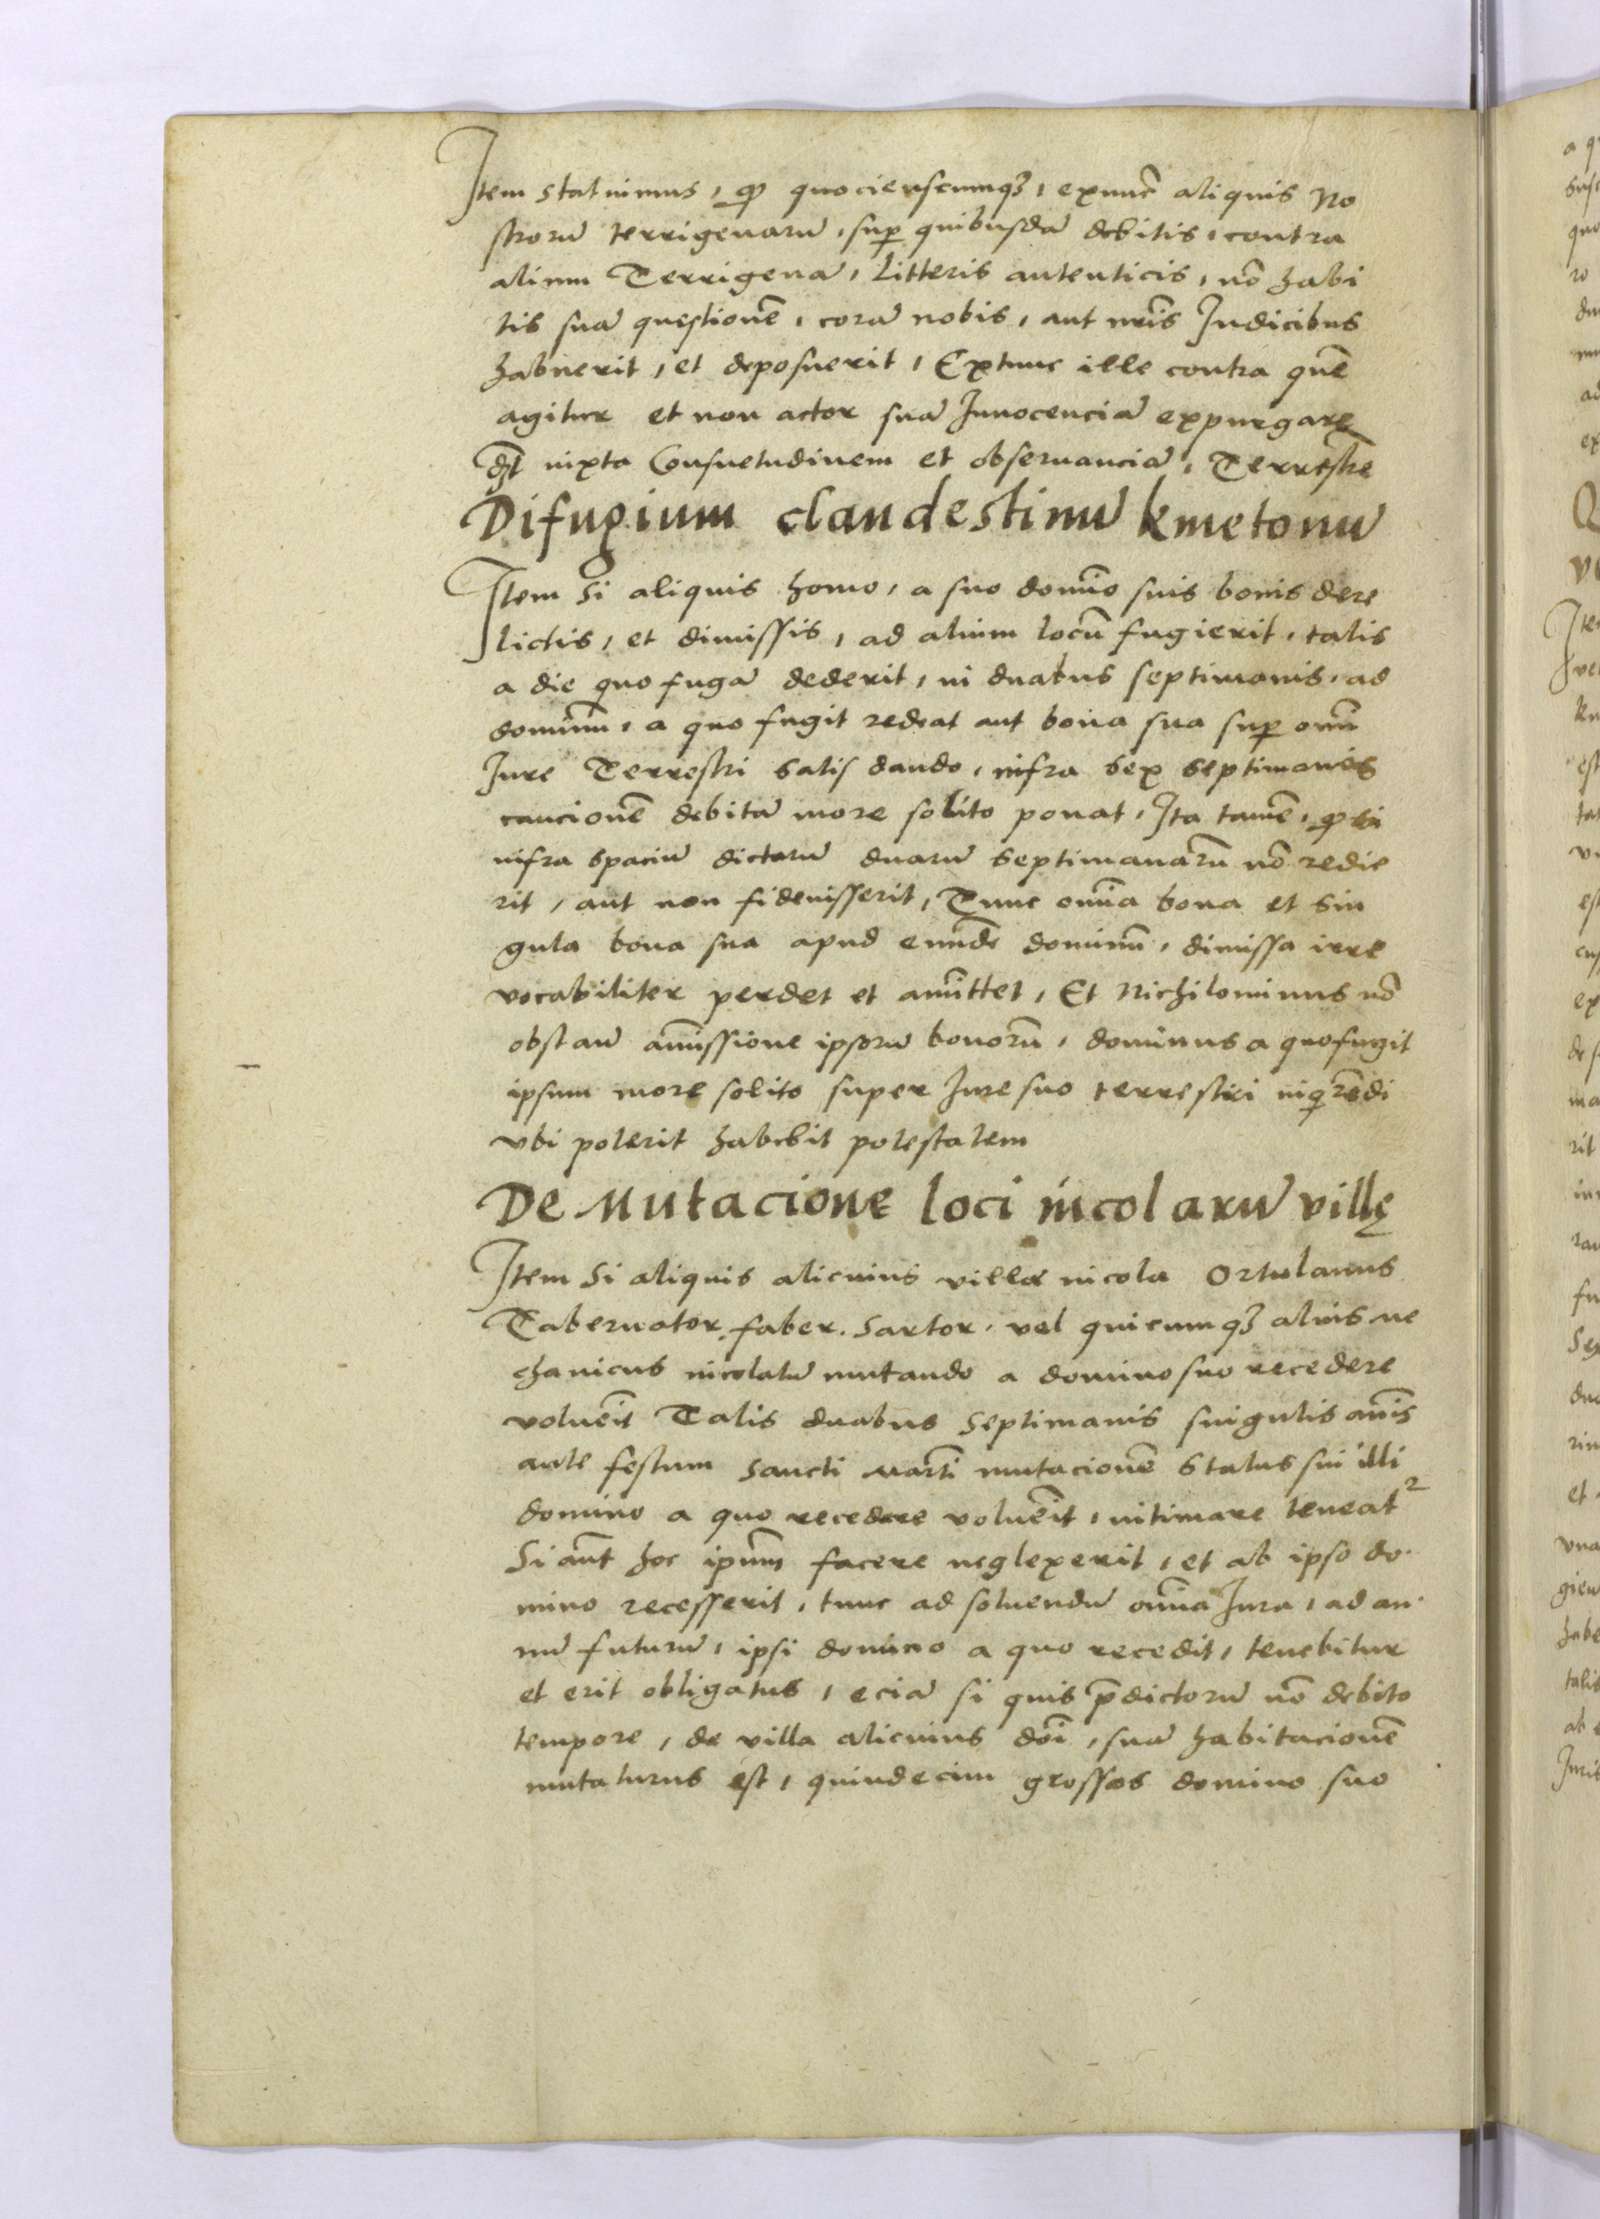 Item statuimus, ꝙ quocienscumqꝫ, exnūc aliquis No
strorū terrigenarū, suꝑ quibusdā debitis, contra
alium Terrigenā, litteris autenticis, nō habi
tis suā questionē, corā nobis, aut nrīs Iudicibus
habuerit, et deposuerit, Extunc ille contra quē
agitur et non actor suā Innocenciā expurgare
dꝫt iuxta Consuetudinem et obseruanciā, Terrestrē
Difugium clandestinū kmetonū
Item Si aliquis homo, a suo domīo suis bonis dere
lictis, et dimissis, ad alium locū fugierit, talis
a die quo fugā dederit, in duabus septimanis, ad
dominū, a quo fugit redeat aut bona sua suꝑ omī
Iure Terrestri satis dando, infra sex septimanas
caucionē debitā more solito ponat, Ita tamē, ꝙ si
infra spaciū dictarū duarū septimanarū nō redie
rit, aut non fideiusserit, Tunc omīa bona et sin
gula bona sua apud eundē dominū, dimissa irre
vocabiliter perdet et amittet, Et Nichilominus nō
obstan̄ amissione ipsorū bonorū, dominus a quo fugit
ipsum more solito super Iure suo terrestri inq̄rēdi
vbi poterit habebit potestatem
De Mutacione loci incolarū villę
Item Si aliquis alicuius villæ incola Ortulanus
Tabernator, faber. Sartor. vel quicumqꝫ alius me
chanicus incolatū mutando a domino suo recedere
voluēit Talis duabus Septimanis singulis anīs
ante festum Sancti Martī mutacionē Status sui illi
domino a quo recedere voluēit, intimare teneat²
Si aūt hoc ipsūm facere neglexerit, et ab ipso do
mino recesserit, tunc ad soluendū omīa Iura, ad an
nū futurū, ipsi domino a quo recedit, tenebitur
et erit obligatus, eciā si quis p̄dictorū nō debito
tempore, de villa alicuius doī, suā habitacionē
mutaturus est, quindecim grossos domino suo